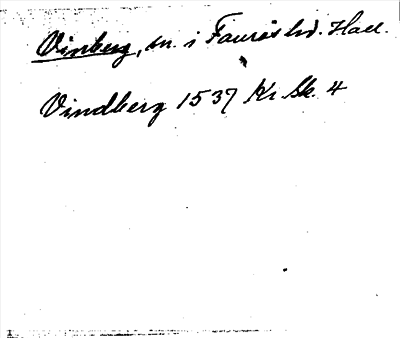 Vinberg, sn. i Faurås hd. Hall.
Vindberg 1537 Kr Sk. 4